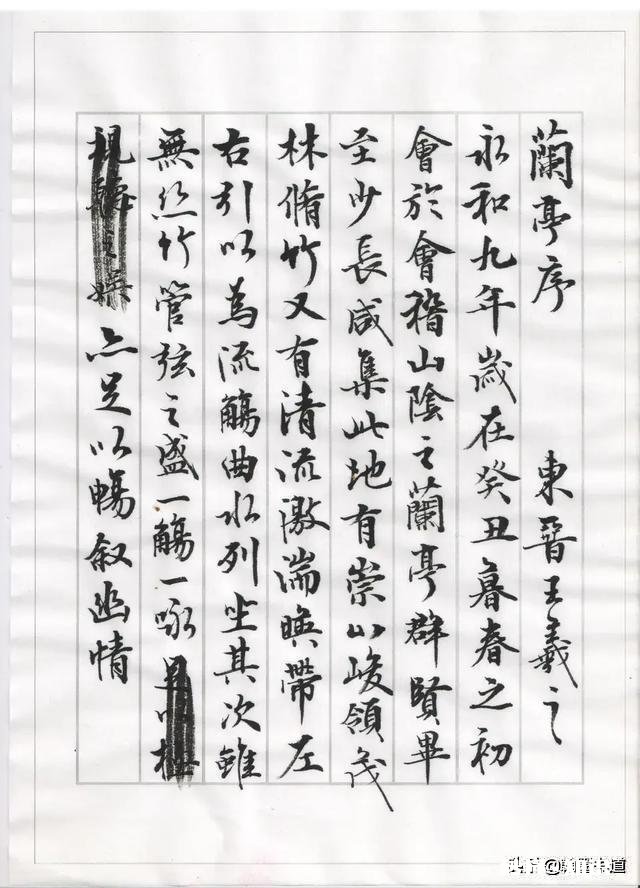 蘭亭序 東晉王羲之
永和九年歲在癸丑暮春之初
會於會稽山陰之蘭亭群賢畢
至少長咸集此地有崇山峻領茂
林脩竹又有清流激湍暎帶左
右引以為流觴曲水列坐其次雖
無丝竹管弦之盛一觴一詠
亦足以暢叙幽情